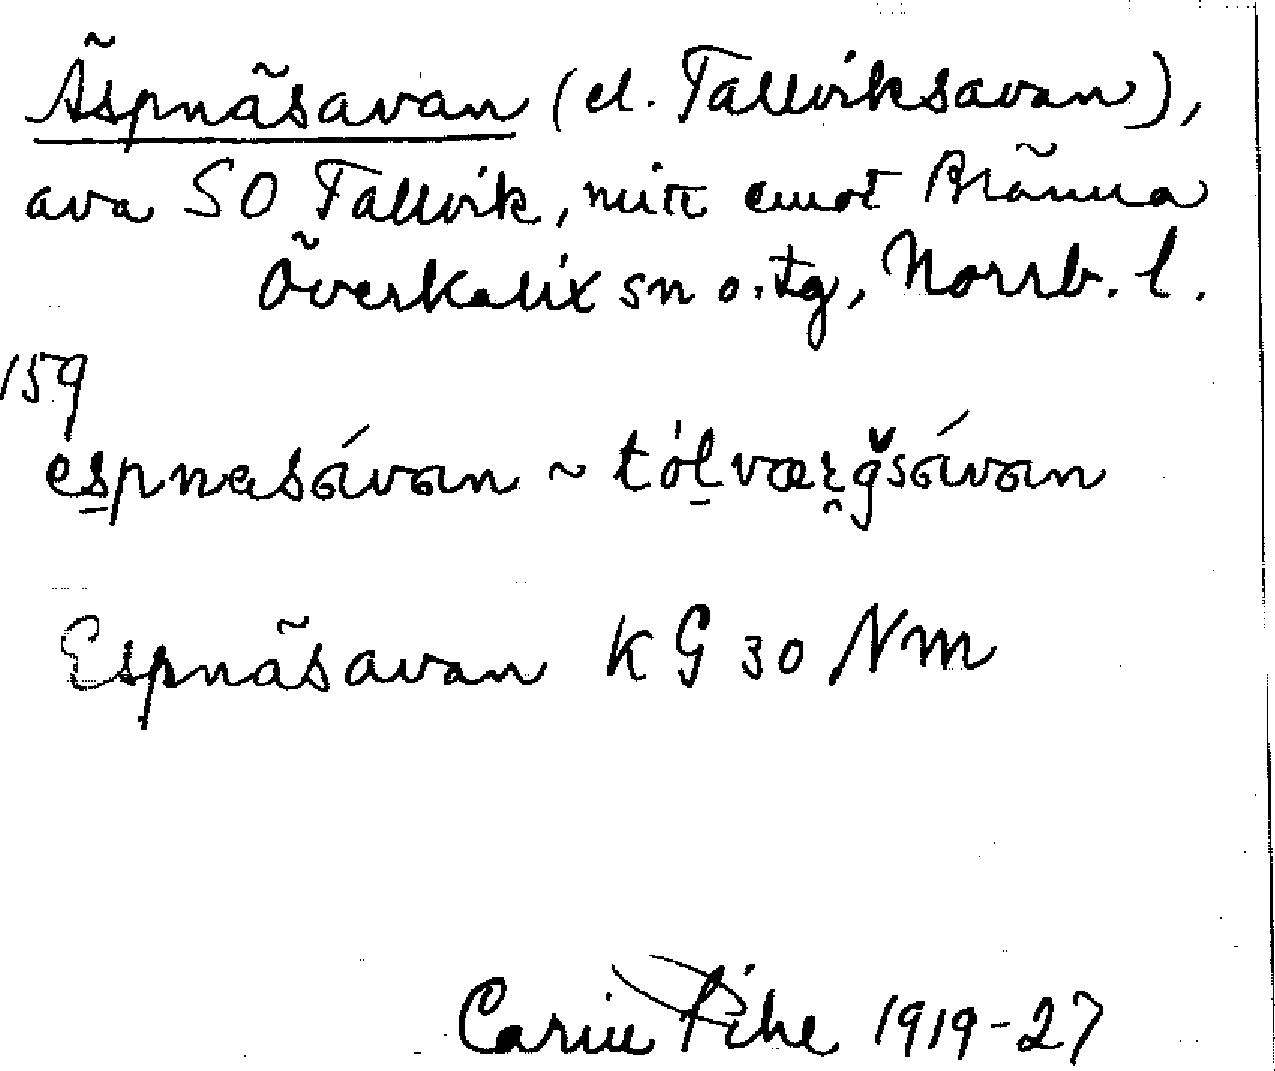 Äspnäsavan (el. Tallviksavan),
ava SO Tallvik, mitt emot Bränna
Överkalix sn o. tg, Norrb. l.
159
espnesávan ~ tólværgsávan
Espnäsavan KG 30 Nm
Carin Pihl 1919-27